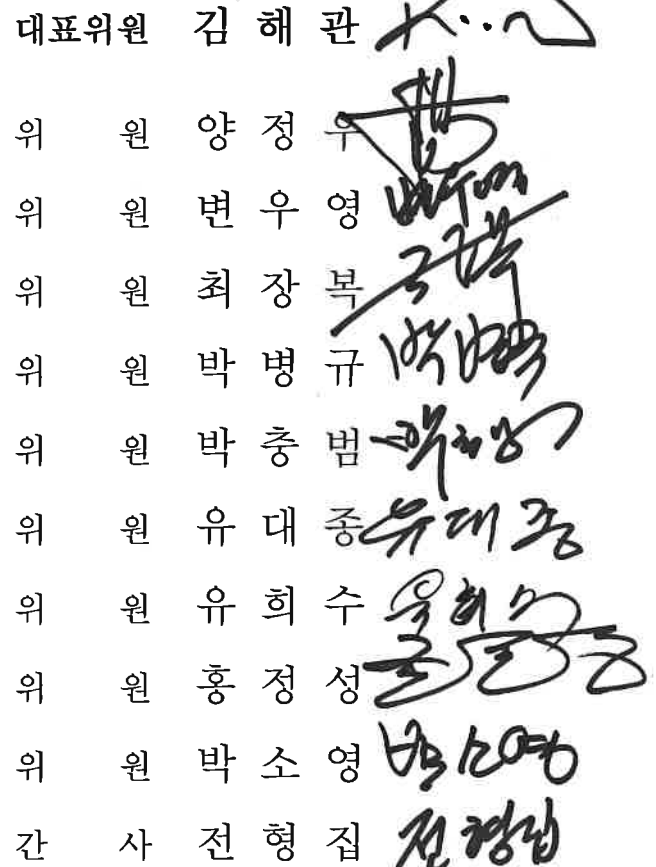 대표위원 김 해 관
위 원 양 정 우
위 원 변 우 영
위 원 최 장 복
위 원 박 병 규
위 원 박 충 범
위 원 유 대 종 유대종
위 원 유 희 수
위 원 홍 정 성
위 원 박 소 영 박소영
간 사 전 형 집 전형집